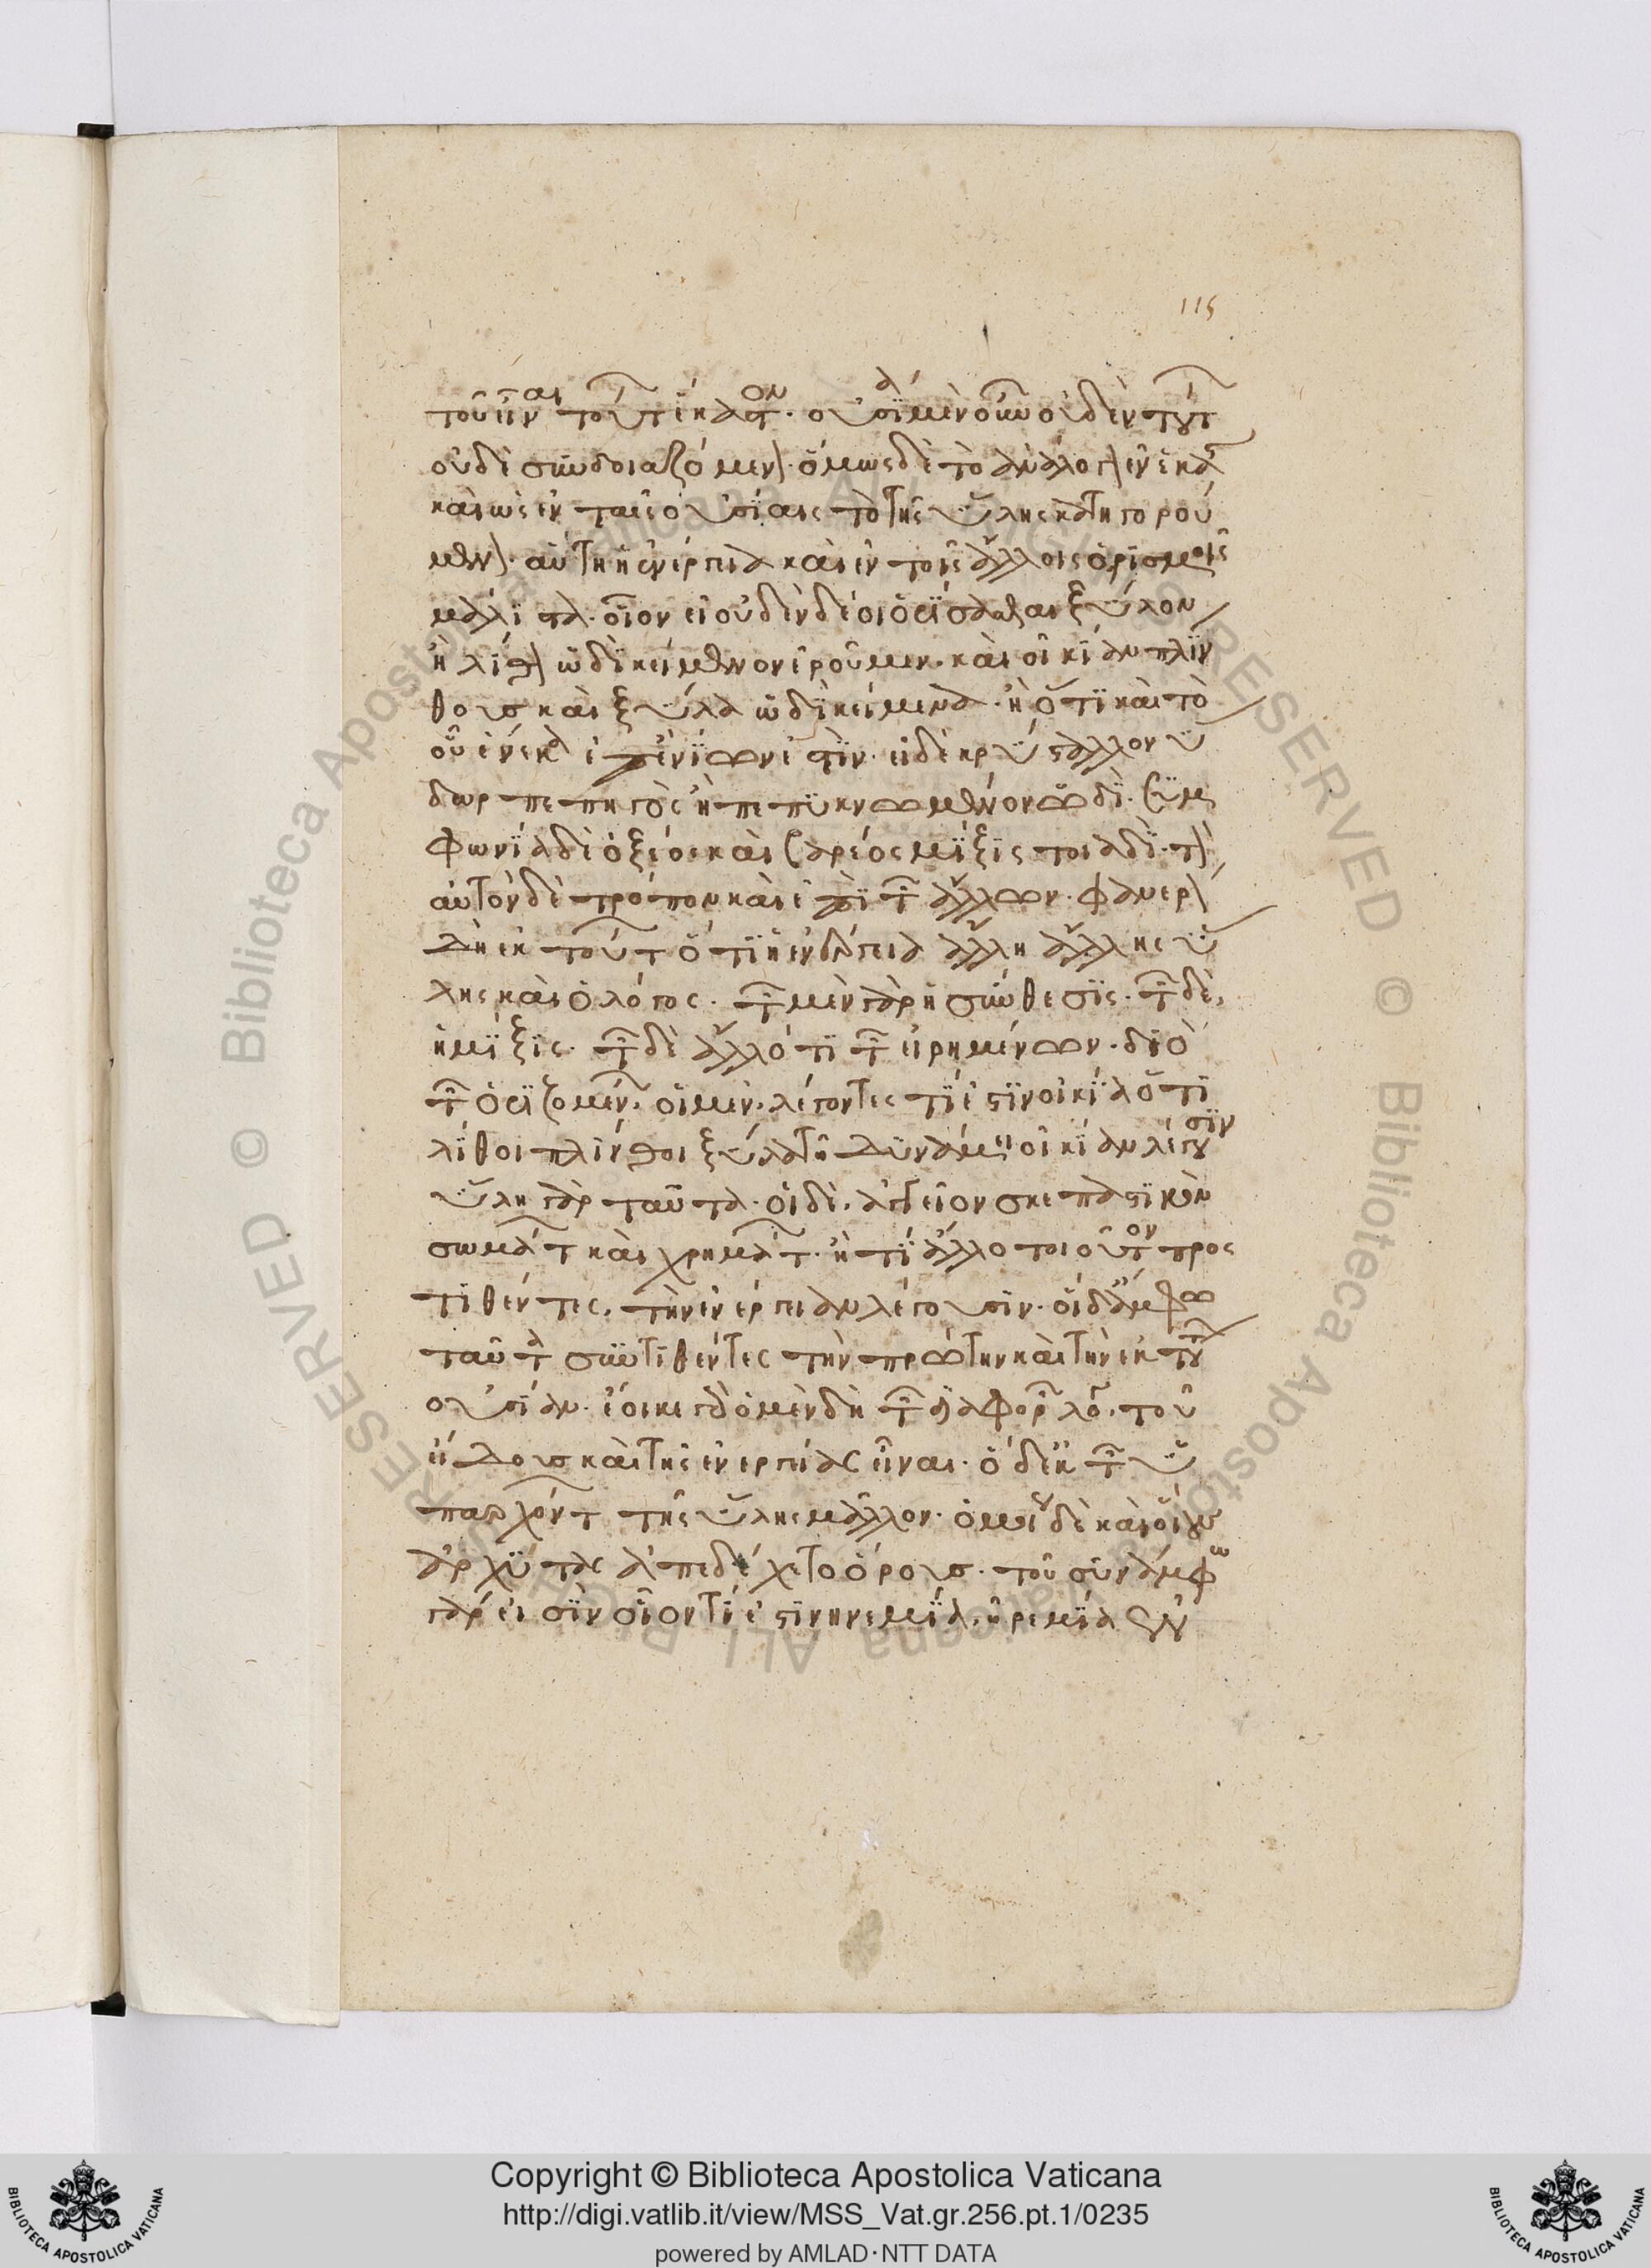 115
τοῦ εἶναι τούτων ἕκαστον. οὐσία μὲν οὖν οὐδὲν τούτων
οὐδὲ συνδοιαζόμενον. ὅμως δὲ τὸ ἀνάλογον ἐν ἑκάστω
καὶ ὡς ἐν ταῖς οὐσίαις τὸ τῆς ὕλης κατηγορού
μενον. αὐτὴ ἡ ἐνέργεια καὶ ἐν τοῖς ἄλλοις ὁρισμοῖς
μάλιστα. οἷον εἰ οὐδὲν δέοι ὁρίσασθαι ξύλον
ἢ λίθον ὡδὶ κείμενον ἐροῦμεν. καὶ οἰκίαν πλίν
θους καὶ ξύλα ὡδὶ κείμενα. ἢ ὅτι καὶ τὸ
οὗ ἕνεκα ἐπ' ἐνίων ἐστίν. εἰ δὲ κρύσταλλον ὕ
δωρ πεπηγὸς ἢ πεπυκνωμένον ὡδί. συμ
φωνία δὲ ὀξέος καὶ βαρέος μίξις τοιαδί. τὸν
αὐτὸν δὲ τρόπον καὶ ἐπὶ τῶν ἄλλων. φανερὸν
δὴ ἐκ τούτων ὅτι ἡ ἐνέργεια ἄλλη ἄλλης ὕ
λης καὶ ὁ λόγος. τῶν μὲν γὰρ ἡ σύνθεσις. τῶν δὲ,
ἡ μίξις. τῶν δὲ ἄλλό τι τῶν εἰρημένων. διὸ
τῶν ὁριζομένων, οἱ μὲν, λέγοντες τί ἐστιν οἰκία ὅτι
λίθοι πλίνθοι ξύλα τὴν δυνάμει οἰκίαν λέγουσιν
ὕλη γὰρ ταῦτα. οἱ δὲ, ἀγγεῖον σκεπαστικὸν
σωμάτων καὶ χρημάτων. ἤ τι ἄλλο τοιοῦτον προς
τιθέντες, τὴν ἐνέργειαν λέγουσιν. οἱ δ' ἄμφω
ταῦτα συντιθέντες τὴν πρώτην καὶ τὴν ἐκ τούτων
οὐσίαν. ἔοικε γὰρ ὁ μὲν διὰ τῶν διαφορῶν λόγος, τοῦ
εἴδους καὶ τῆς ἐνεργείας εἶναι. ὁ δ' ἐκ τῶν ὑ
παρχόντων τῆς ὕλης μᾶλλον. ὁμοίως δὲ καὶ οἵους
ἀρχύτας ἀπεδέχετο ὅρους. τοῦ συνάμφω
γάρ εἰσιν οἷον τί ἐστιν ηνεμία, ἠρεμία ἐν
Copyright © Biblioteca Apostolica Vaticana
http://digi.vatlib.it/view/MSS_Vat.gr.256.pt.1/0235
powered by AMLAD·NTT DATA